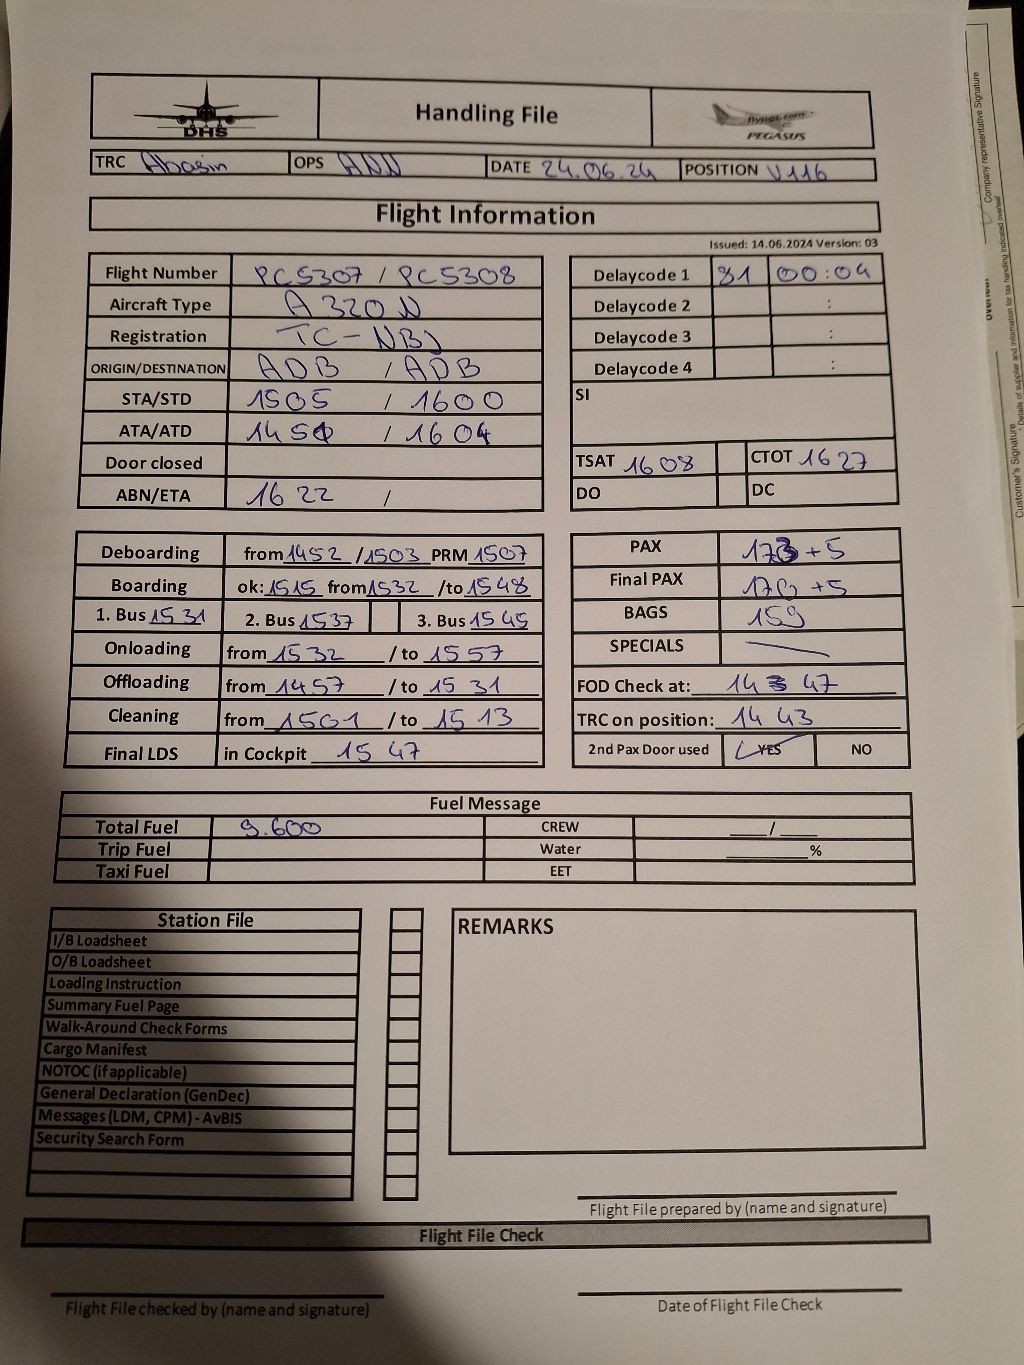 DHS
Handling File
flypgs.com
PEGASUS
TRC Abasin OPS ANN DATE 24.06.24 POSITION V116
Flight Information
Issued: 14.06.2024 Version: 03
Flight Number PC5307 / PC5308
Aircraft Type A320N
Registration TC-NBJ
ORIGIN/DESTINATION ADB / ADB
STA/STD 1505 / 1600
ATA/ATD 1451 / 1604
Door closed
ABN/ETA 1622 /
Delaycode 1 81 00:04
Delaycode 2 :
Delaycode 3 :
Delaycode 4 :
SI
TSAT 1608 CTOT 1627
DO DC
Deboarding from 1452 / 1503 PRM 1507
Boarding ok: 1515 from 1532 /to 1548
1. Bus 1531 2. Bus 1537 3. Bus 1545
Onloading from 1532 / to 1557
Offloading from 1457 / to 1531
Cleaning from 1501 / to 1513
Final LDS in Cockpit 1547
PAX 173 +5
Final PAX +5
BAGS 159
SPECIALS
FOD Check at: 14 47
TRC on position: 1443
2nd Pax Door used YES NO
Fuel Message
Total Fuel 9.600 CREW ___/___
Trip Fuel Water ______%
Taxi Fuel EET
Station File
I/B Loadsheet
O/B Loadsheet
Loading Instruction
Summary Fuel Page
Walk-Around Check Forms
Cargo Manifest
NOTOC (if applicable)
General Declaration (GenDec)
Messages (LDM, CPM) - AvBIS
Security Search Form
REMARKS
Flight File prepared by (name and signature)
Flight File Check
Flight File checked by (name and signature)
Date of Flight File Check
Company representative Signature
Customer's Signature
* Details of supplier and information for tax handling indicated overleaf
overleaf